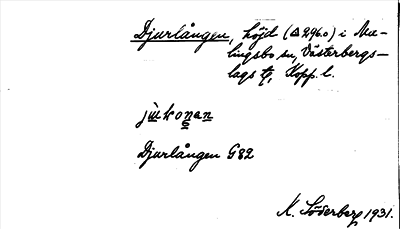 Djurlången, höjd (△296.0) i Ma-
lingsbo sn, Västerbergs-
lags tg, Kopp. l.
jɯkonan
Djurlången G82
K. Söderberg 1931.